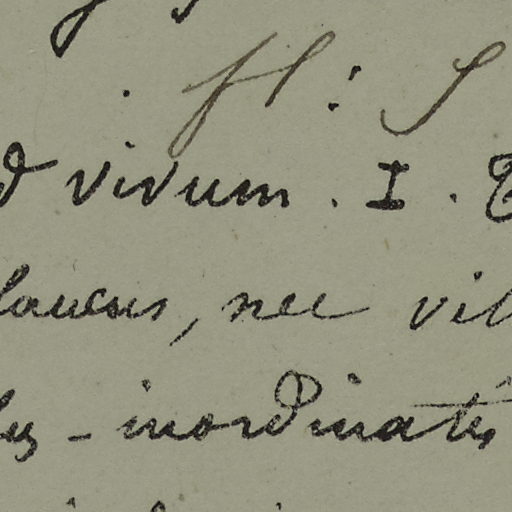 fl: S
d vivum. I. T
laucus, nec vil
lus - inordinatis